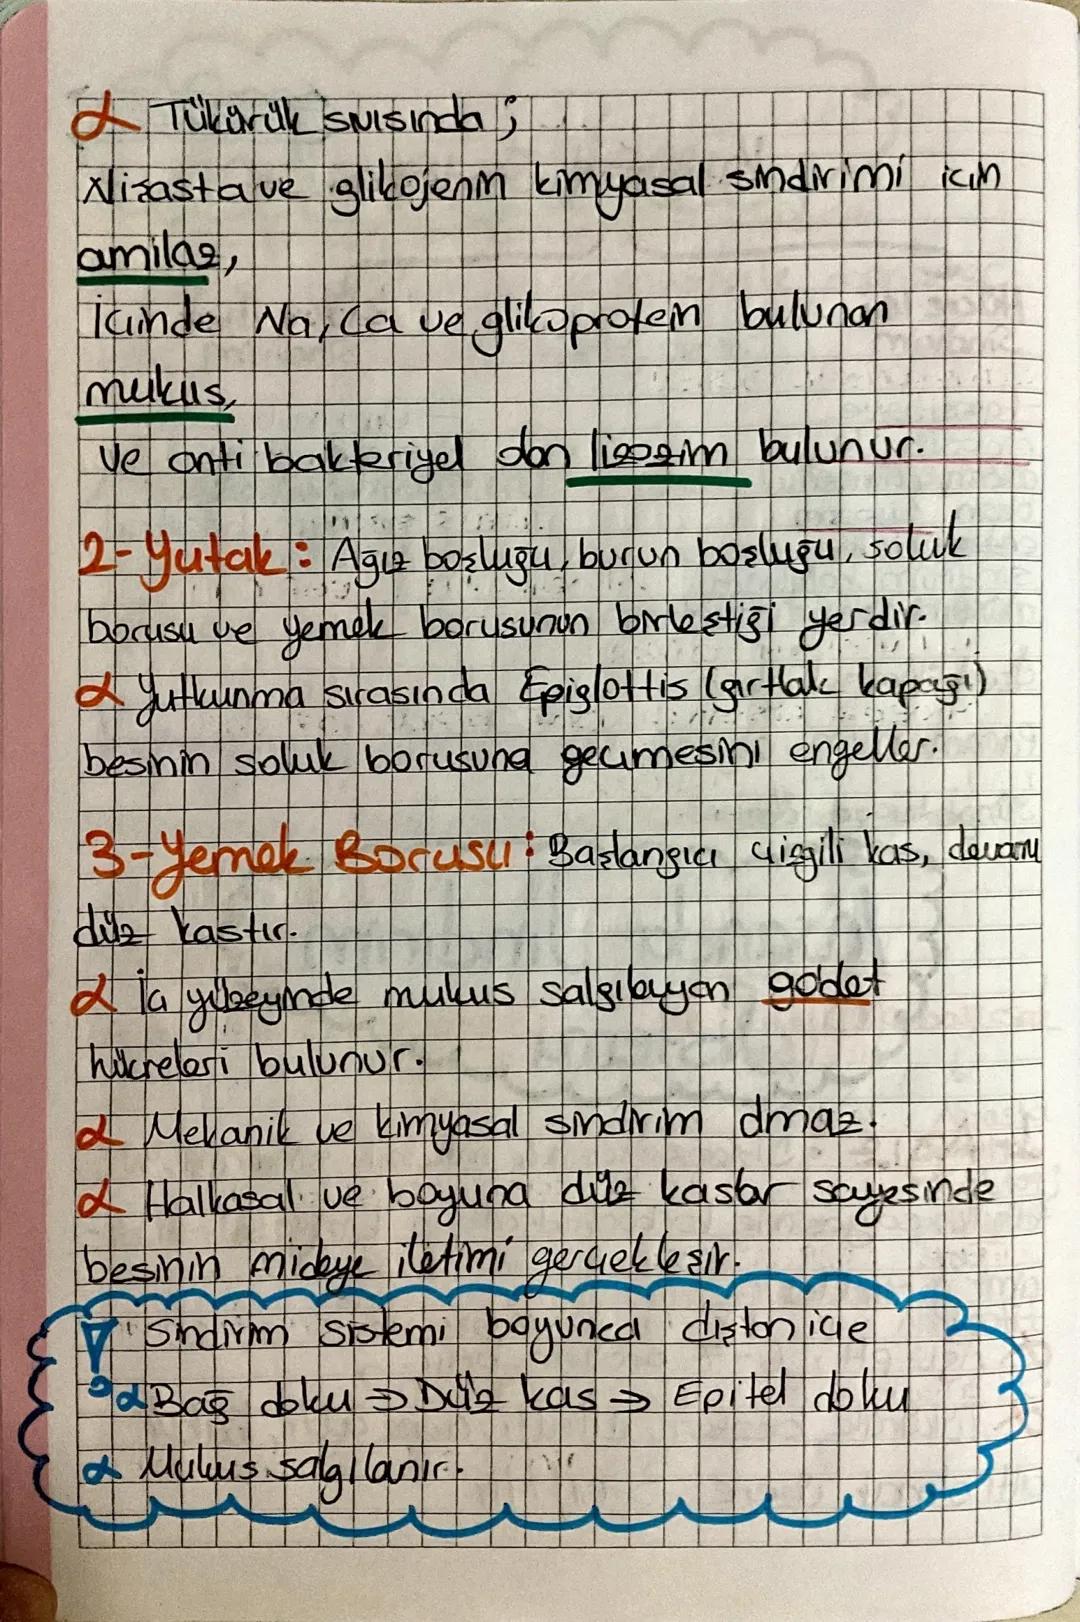 α Tükürük sıvısında ;
Nişasta ve glikojenin kimyasal sindirimi için
amilaz,
İçinde Na, Ca ve glikoprotein bulunan
mukus,
ve anti bakteriyel olan lizozim bulunur.
2-Yutak : Ağız boşluğu, burun boşluğu, soluk
borusu ve yemek borusunun birleştiği yerdir.
α Yutkunma sırasında Epiglottis (gırtlak kapağı)
besinin soluk borusuna geçmesini engeller.
3-Yemek Borusu : Başlangıcı çizgili kas, devamı
düz kastır.
α İç yüzeyinde mukus salgılayan goblet
hücreleri bulunur.
α Mekanik ve kimyasal sindirim olmaz.
α Halkasal ve boyuna düz kaslar sayesinde
besinin mideye iletimi gerçekleşir.
! Sindirim sistemi boyunca dıştan içe
α Bağ doku ⇒ Düz kas ⇒ Epitel doku
α Mukus salgılanır.